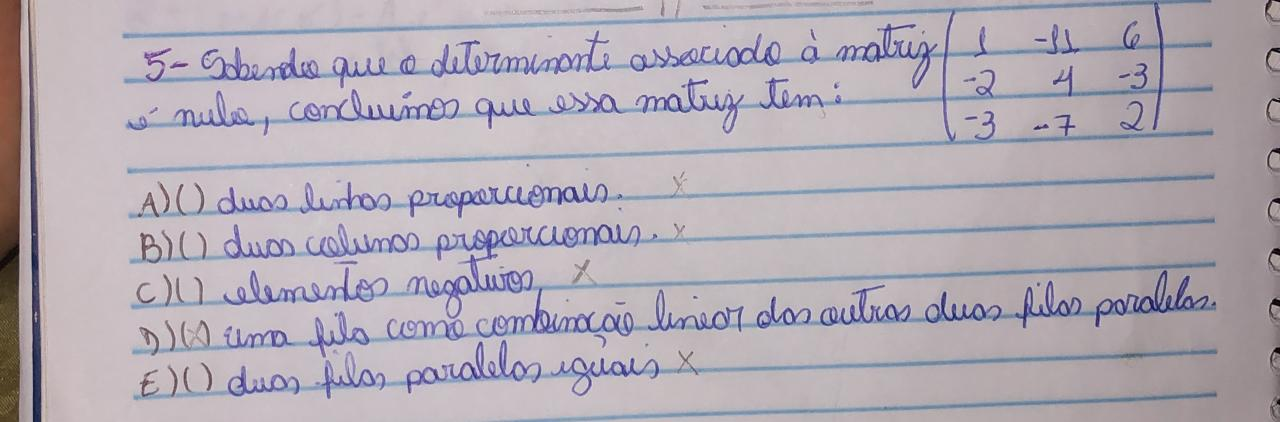 5- Sabendo que o determinante associado à matriz | 1 -11 6 |
é nulo, concluímos que essa matriz tem: | -2 4 -3 |
| -3 -7 2 |
A) ( ) duas linhas proporcionais. x
B) ( ) duas colunas proporcionais. x
C) ( ) elementos negativos x
D) (x) uma fila como combinação linear das outras duas filas paralelas.
E) ( ) duas filas paralelas iguais x